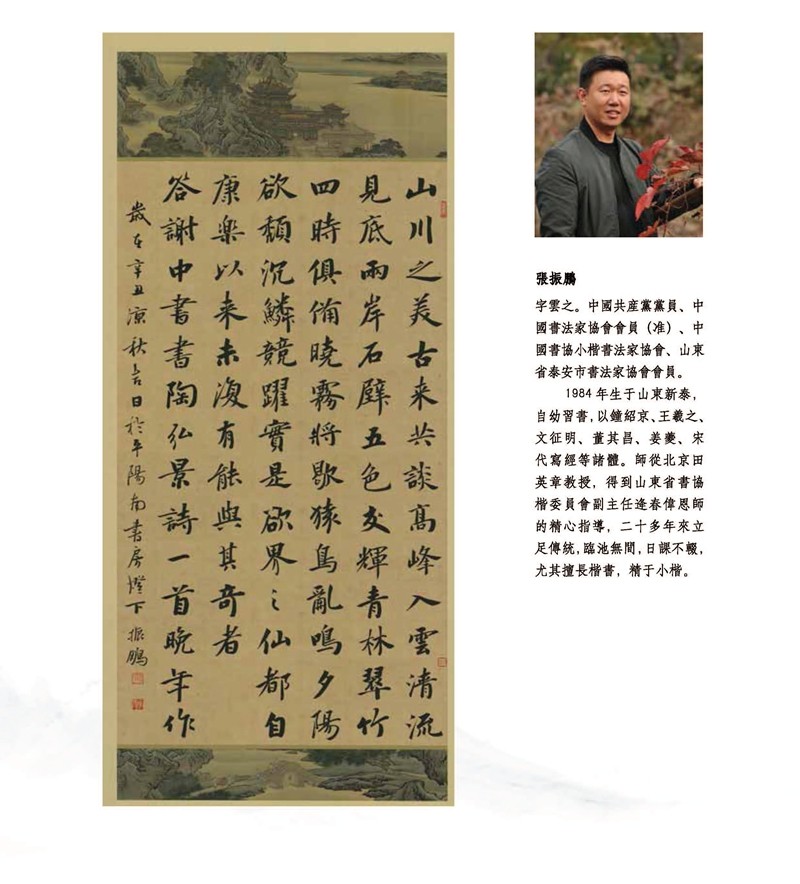 山川之美古来共談髙峰入雲清流
見底兩岸石壁五色交輝青林翠竹
四時俱備曉霧將歇猿鳥亂鳴夕陽
欲頹沉鱗競躍實是欲界之仙都自
康樂以来未復有能與其奇者
答謝中書書陶弘景詩一首晚年作
歲在辛丑涼秋吉日於平陽南書房燈下振鵬
張振鵬
字雲之。中國共産黨黨員、中
國書法家協會會員（准）、中
國書協小楷書法家協會、山東
省泰安市書法家協會會員。
1984年生于山東新泰，
自幼習書，以鐘紹京、王羲之、
文征明、董其昌、姜夔、宋
代寫經等諸體。師從北京田
英章教授，得到山東省書協
楷委員會副主任逄春偉恩師
的精心指導，二十多年來立
足傳統，臨池無間，日課不輟，
尤其擅長楷書，精于小楷。